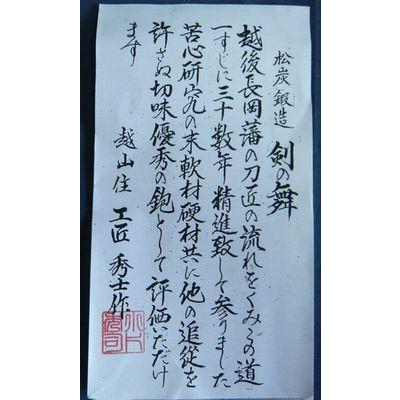 松炭鍛造 剣の舞
越後長岡藩の刀匠の流れをくみこの道
一すじに三十数年精進致して参りました
苦心研究の末軟材硬材共に他の追従を
許さぬ切味優秀の鉋として評価いただけ
ます
越山住 工匠 秀士作